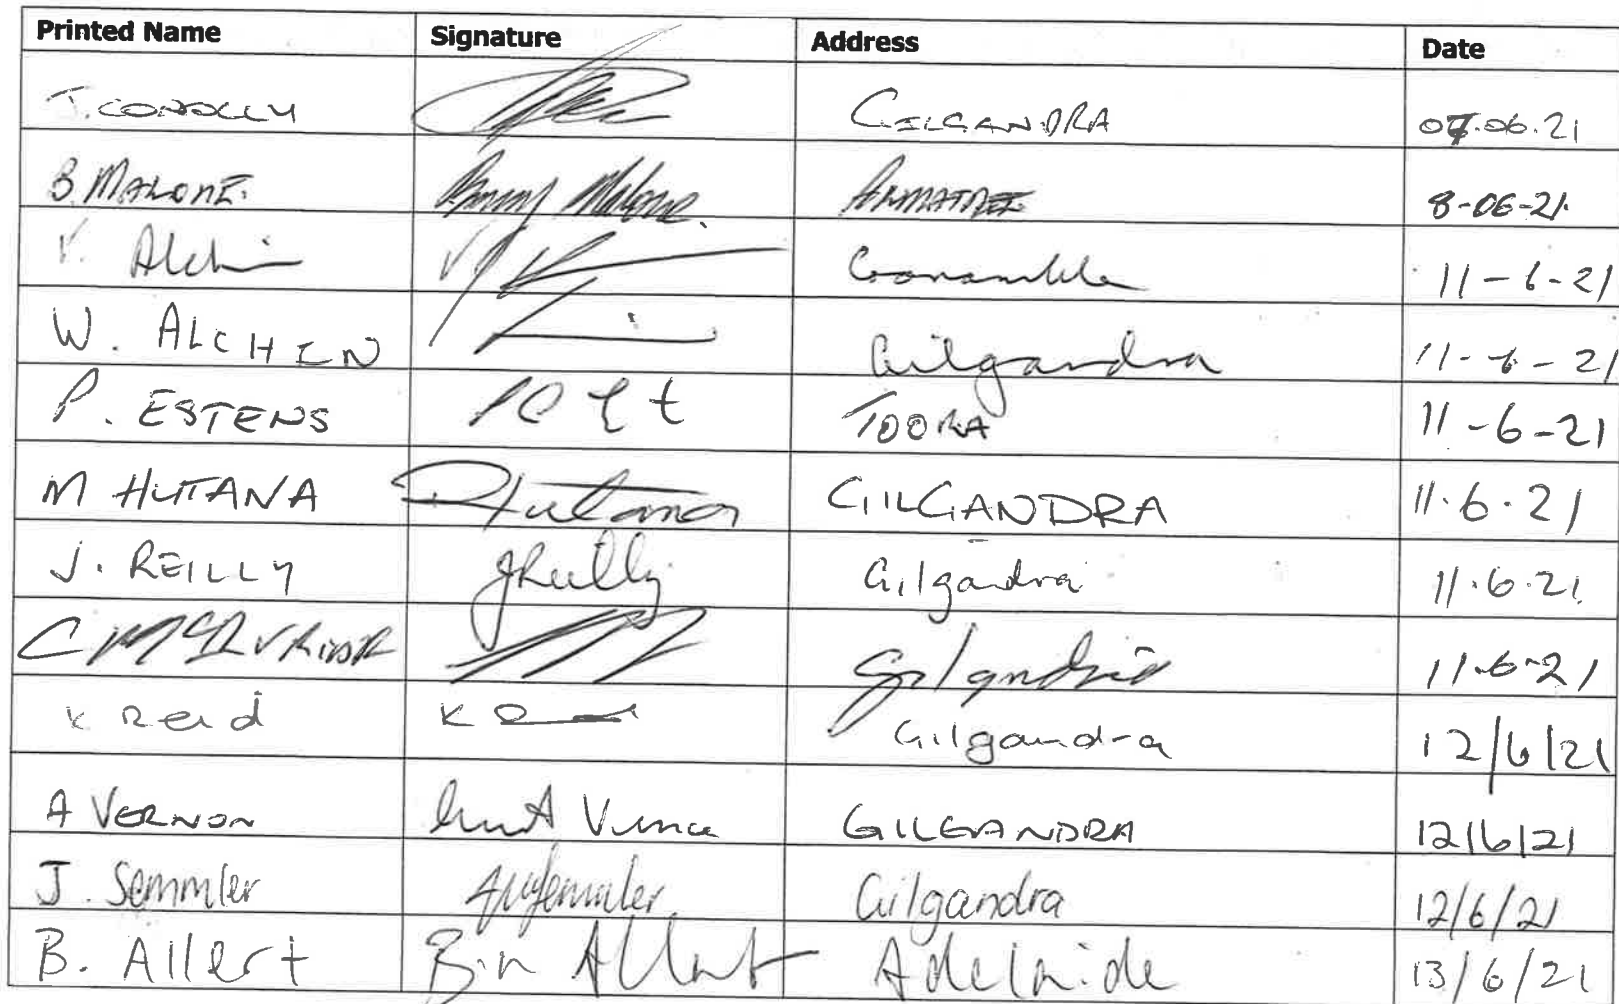 Printed Name Signature Address Date
T. CONOLLY GILGANDRA 07.06.21
B MALONE. Malone. ARMATREE 8-06-21.
V. Alchin Coonamble 11-6-21
W. ALCHIN Gilgandra 11-6-21
P. ESTENS TOORA 11-6-21
M HUTANA Hutana GILGANDRA 11.6.21
J. REILLY JReilly Gilgandra 11.6.21
C Gilgandra 11.6.21
K Reid K Gilgandra 12/6/21
A VERNON GILGANDRA 12/6/21
J. Semmler Gilgandra 12/6/21
B. Allert Allert Adelaide 13/6/21